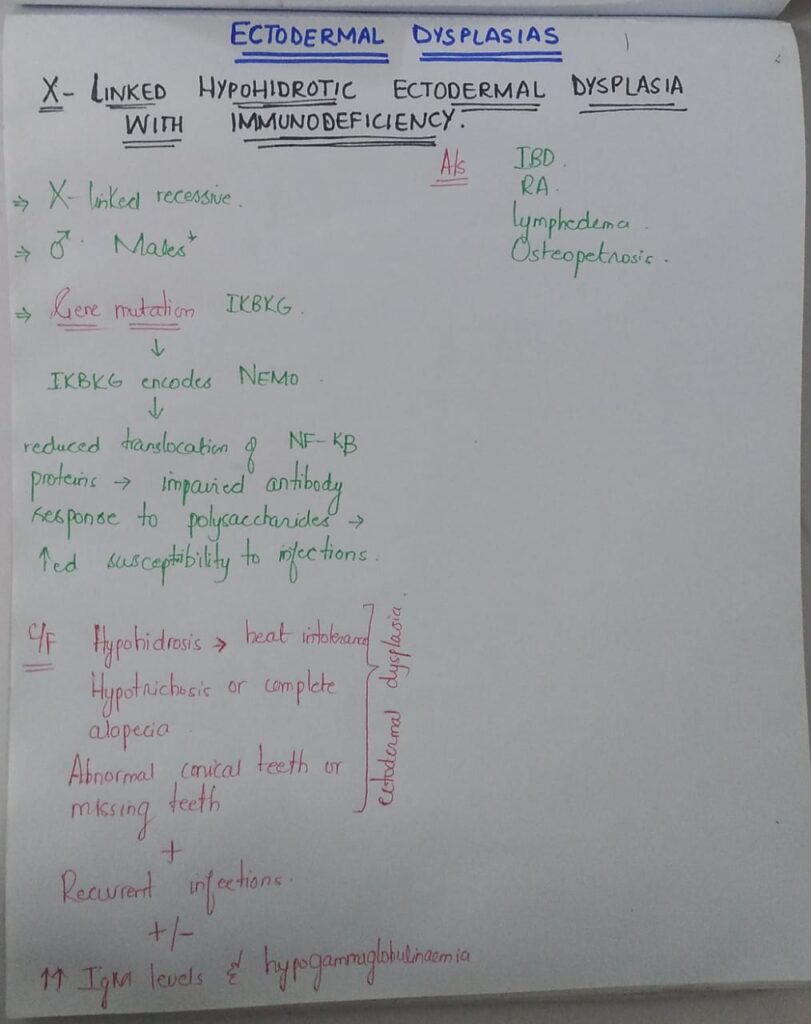 ECTODERMAL DYSPLASIAS
X- LINKED HYPOHIDROTIC ECTODERMAL DYSPLASIA
WITH IMMUNODEFICIENCY.
⇒ X- linked recessive.
⇒ ♂. Males+
⇒ Gene mutation IKBKG.
↓
IKBKG encodes NEMO.
↓
reduced translocation of NF-KB
proteins → impaired antibody
response to polysaccharides →
↑ed susceptibility to infections.
C/F Hypohidrosis → heat intolerance
Hypotrichosis or complete
alopecia
Abnormal conical teeth or
missing teeth
ectodermal dysplasia.
+
Recurrent infections.
+/-
↑↑ IgM levels & hypogammaglobulinaemia
A/s IBD.
RA.
Lymphedema.
Osteopetrosis.